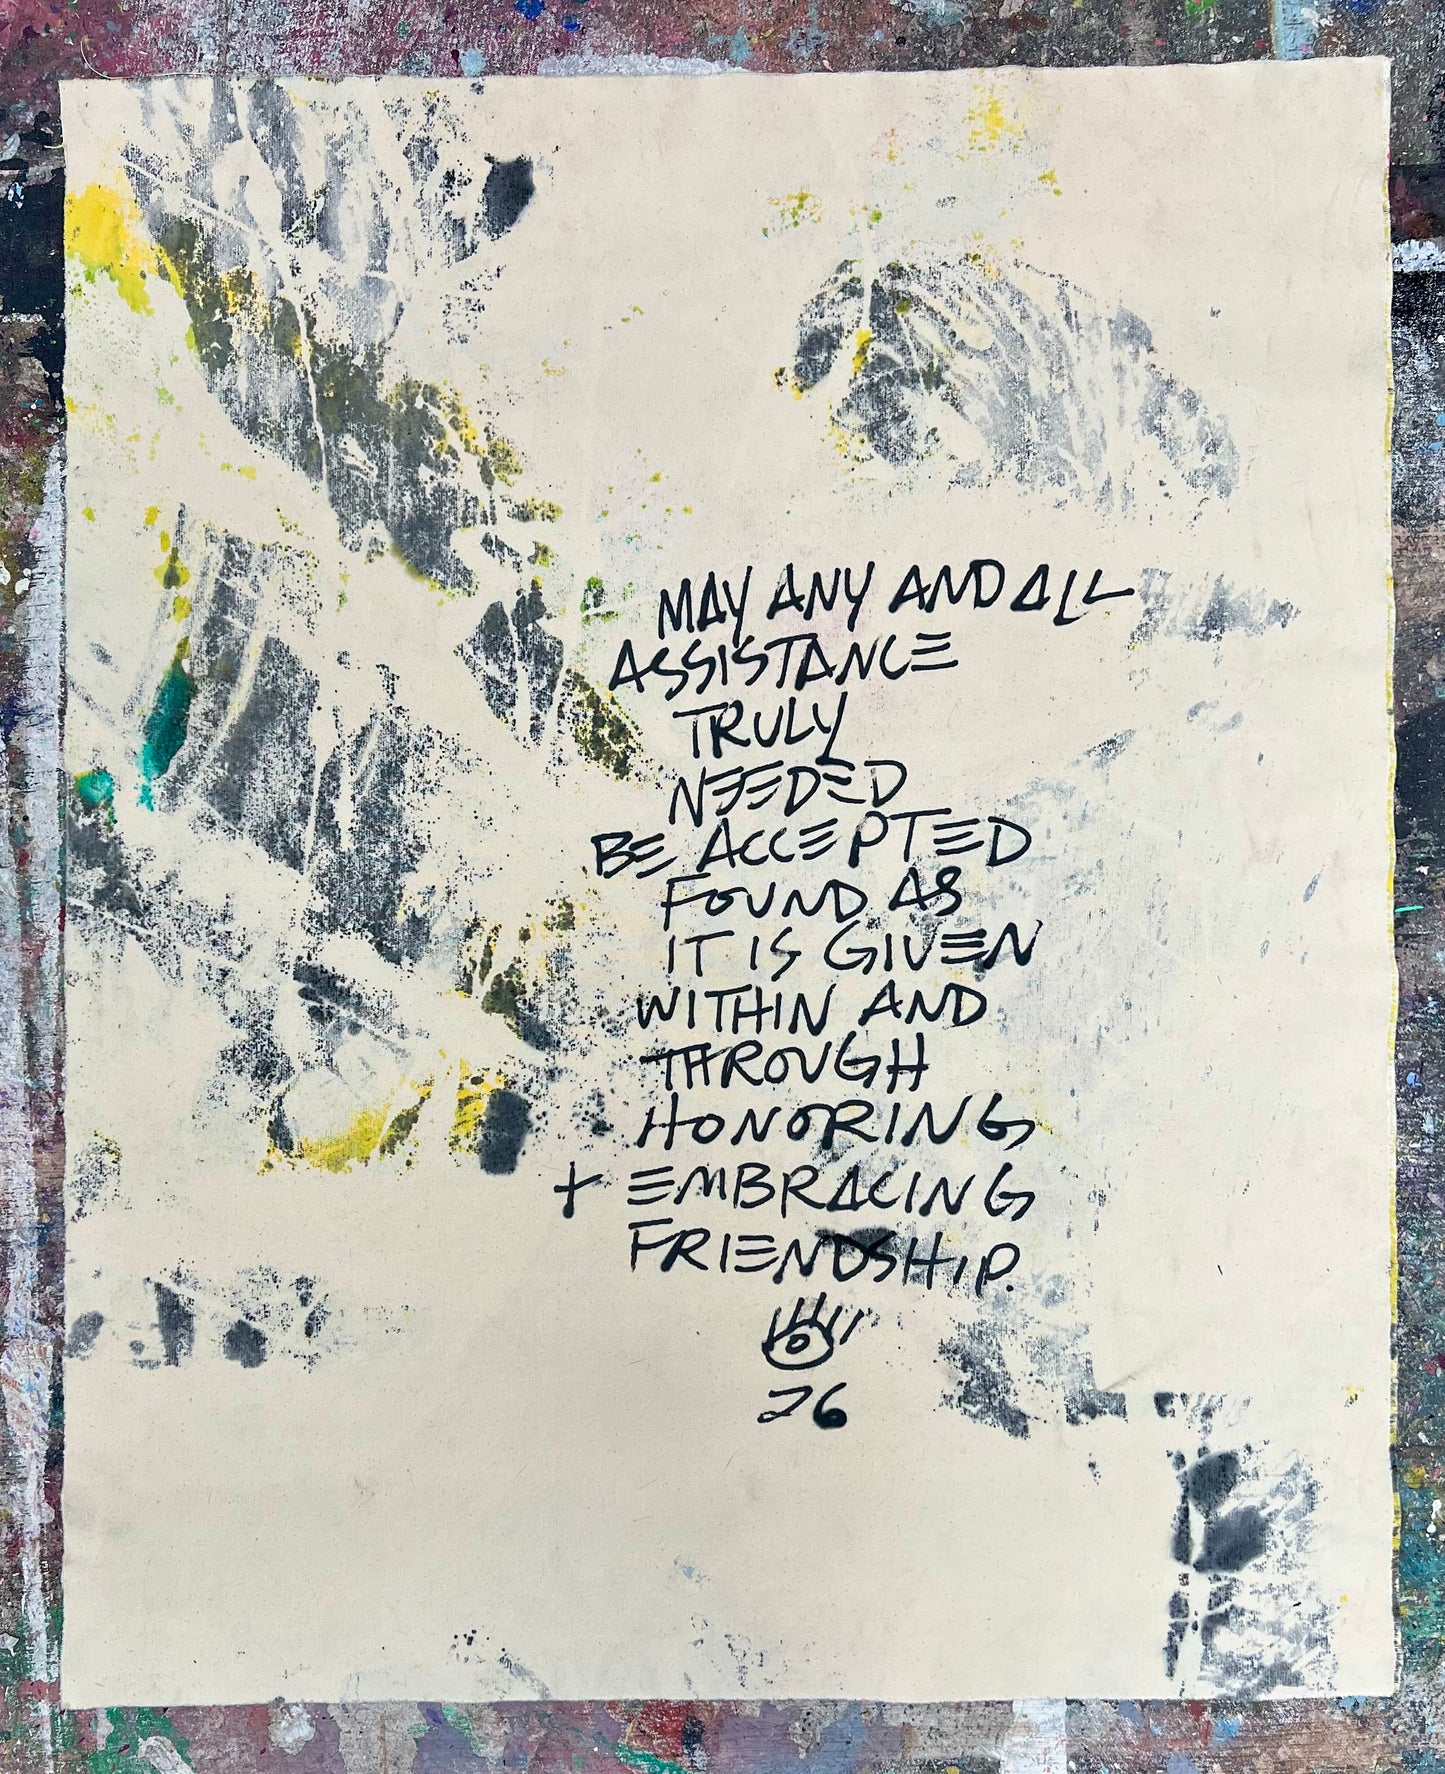 MAY ANY AND ALL
ASSISTANCE
TRULY
NEEDED
BE ACCEPTED
FOUND AS
IT IS GIVEN
WITHIN AND
THROUGH
HONORING
+ EMBRACING
FRIENDSHIP.
26